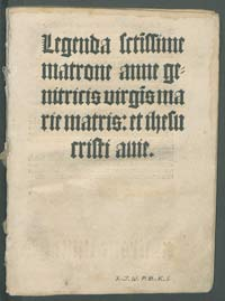 Legenda sctīssime
matrone anne ge-
nitricis virgīs ma
rie matris: et ihesu
cristi auie.